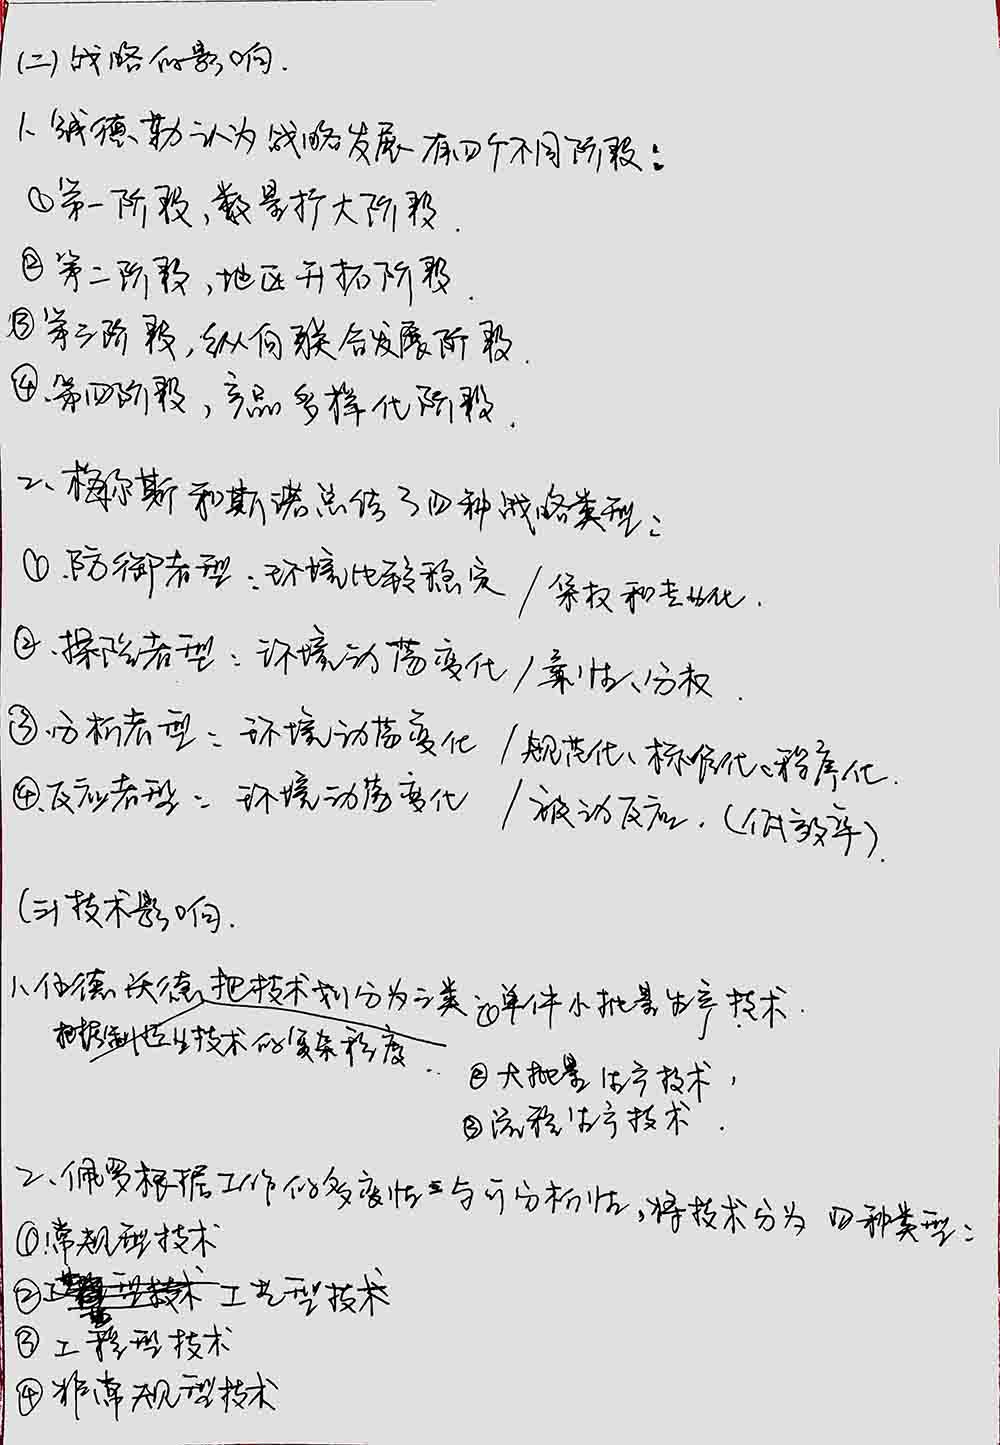 (二)战略的影响.
1、钱德勒认为战略发展有四个不同阶段:
①第一阶段,数量扩大阶段.
②第二阶段,地区开拓阶段.
③第三阶段,纵向联合发展阶段.
④.第四阶段,产品多样化阶段.
2、梅尔斯和斯诺总结了四种战略类型:
①.防御者型:环境比较稳定/集权和专业化.
②.探险者型:环境动荡变化/柔性、分权.
③.分析者型:环境动荡变化/规范化、标准化、程序化.
④.反应者型:环境动荡变化/被动反应.(低效率).
(三)技术影响.
1、伍德沃德把技术划分为三类:①单件小批量生产技术.
根据制造业技术的复杂程度..
②大批量生产技术,
③流程生产技术.
2、佩罗根据工作的多变性与可分析性,将技术分为四种类型:
①常规型技术
②工艺型技术
③工程型技术
④非常规型技术